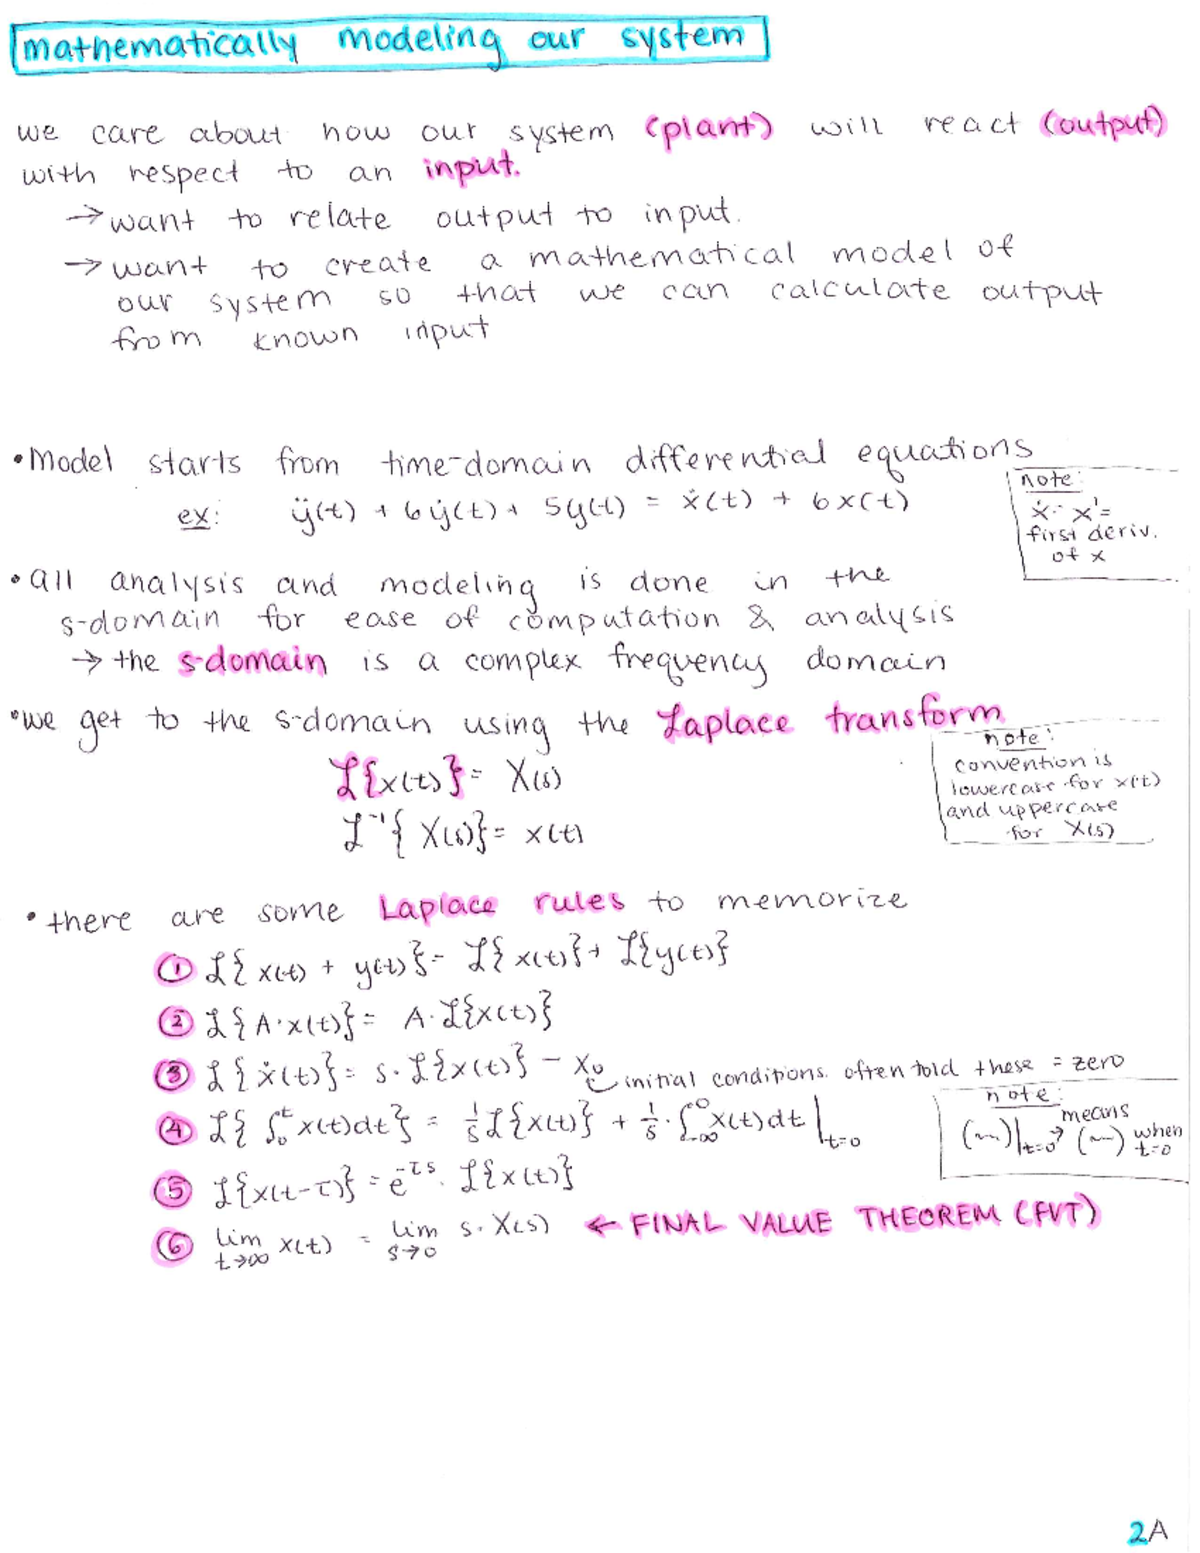 mathematically modeling our system
we care about how our system (plant) will react (output)
with respect to an input.
→ want to relate output to input.
→ want to create a mathematical model of
our system so that we can calculate output
from known input
• Model starts from time-domain differential equations
ex: ÿ(t) + 6ẏ(t) + 5y(t) = ẋ(t) + 6x(t)
note:
ẋ = x' =
first deriv.
of x
• all analysis and modeling is done in the
s-domain for ease of computation & analysis
→ the s-domain is a complex frequency domain
• we get to the s-domain using the Laplace transform
ℒ{x(t)} = X(s)
ℒ⁻¹{X(s)} = x(t)
note:
convention is
lowercase for x(t)
and uppercase
for X(s)
• there are some Laplace rules to memorize
① ℒ{x(t) + y(t)} = ℒ{x(t)} + ℒ{y(t)}
② ℒ{A·x(t)} = A·ℒ{x(t)}
③ ℒ{ẋ(t)} = s·ℒ{x(t)} − x₀ initial conditions. often told these = zero
④ ℒ{∫₀ᵗ x(t)dt} = 1/s ℒ{x(t)} + 1/s · ∫₋∞⁰ x(t)dt |t=0
note:
(~)|t=0 → means (~) when t=0
⑤ ℒ{x(t-τ)} = e^-τs · ℒ{x(t)}
⑥ lim t→∞ x(t) = lim s→0 s·X(s) ← FINAL VALUE THEOREM (FVT)
2A